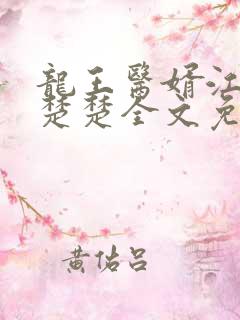 龍王醫婿江
楚楚全文免
黄佑吕